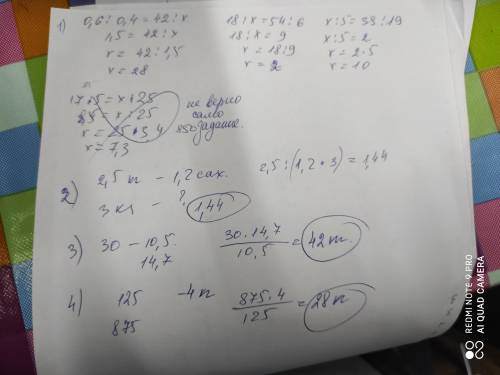 1) 0,6 : 0,4 = 42 : x
1,5 = 42 : x
x = 42 : 1,5
x = 28
18 : x = 54 : 6
18 : x = 9
x = 18 : 9
x = 2
x : 5 = 38 : 19
x : 5 = 2
x = 2 · 5
x = 10
17 · 5 = x · 25
85 = x · 25
x = 3,4
x = 7,3
не верно
само
задание.
2) 2,5 кг – 1,2 сах.
3 кг – ? 1,44
2,5 : (1,2 · 3) = 1,44
3) 30 – 10,5.
14,7
30 · 14,7 / 10,5 = 42 т.
4) 125 – 4 т
875
875 · 4 / 125 = 28 т
REDMI NOTE 9 PRO
AI QUAD CAMERA